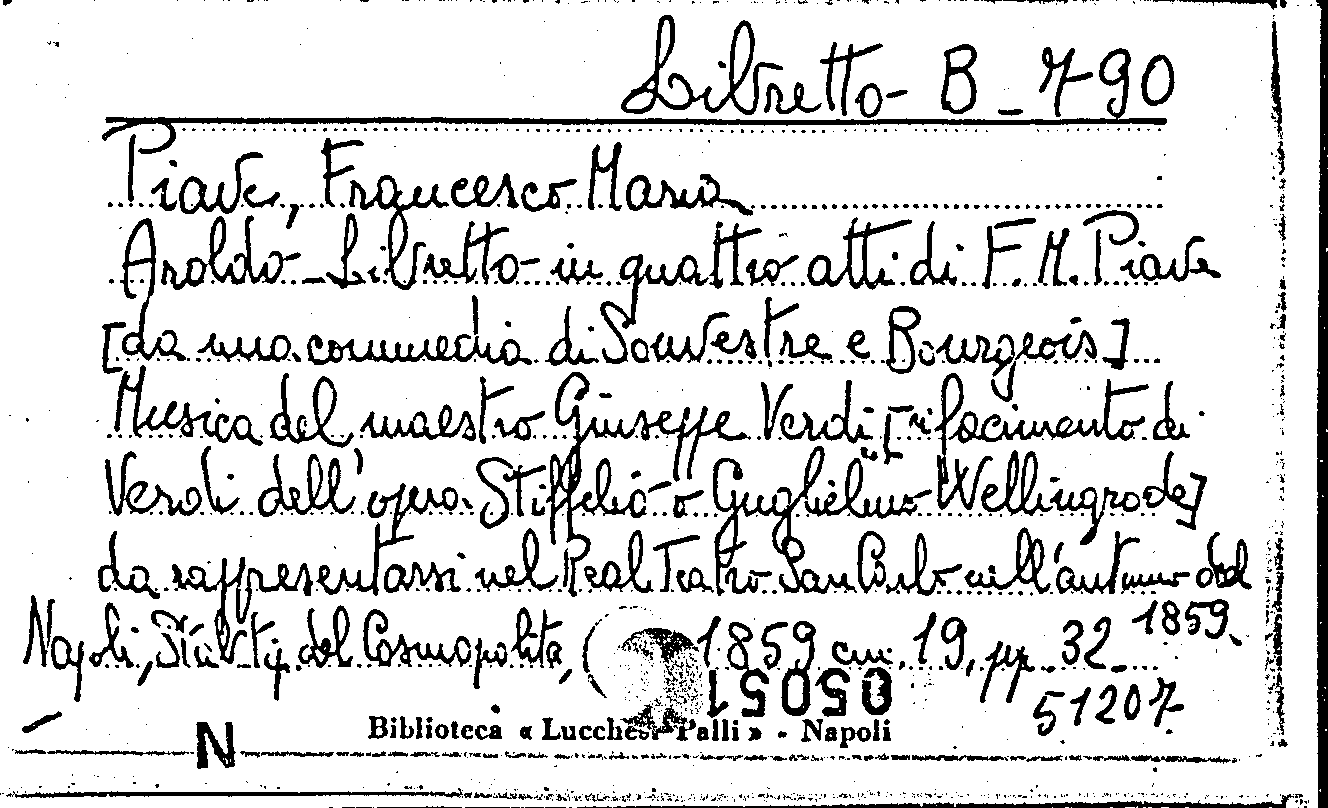 Libretto - B - 790
Piave, Francesco Maria
Aroldo - Libretto in quattro atti di F. M. Piave
[da una commedia di Souvestre e Bourgeois]
Musica del maestro Giuseppe Verdi [rifacimento di
Verdi dell'opera Stiffelio "o Guglielmo Wellingrode]
da rappresentarsi nel Real Teatro San Carlo nell'autunno del
1859
Napoli, Stab. tip. del Cosmopolita, 1859 cm. 19, pp. 32
15050
51207
Biblioteca « Lucchesi Palli » - Napoli
N